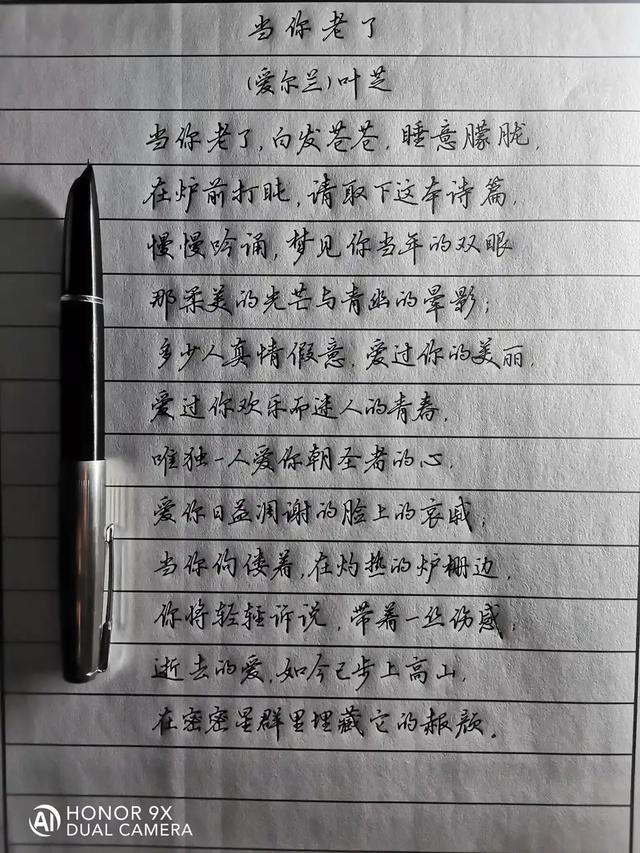 当你老了
(爱尔兰)叶芝
当你老了,白发苍苍,睡意朦胧,
在炉前打盹,请取下这本诗篇,
慢慢吟诵,梦见你当年的双眼
那柔美的光芒与青幽的晕影;
多少人真情假意,爱过你的美丽,
爱过你欢乐而迷人的青春,
唯独一人爱你朝圣者的心,
爱你日益凋谢的脸上的哀戚;
当你佝偻着,在灼热的炉栅边,
你将轻轻诉说,带着一丝伤感;
逝去的爱,如今已步上高山,
在密密星群里埋藏它的赧颜。
HONOR 9X
DUAL CAMERA